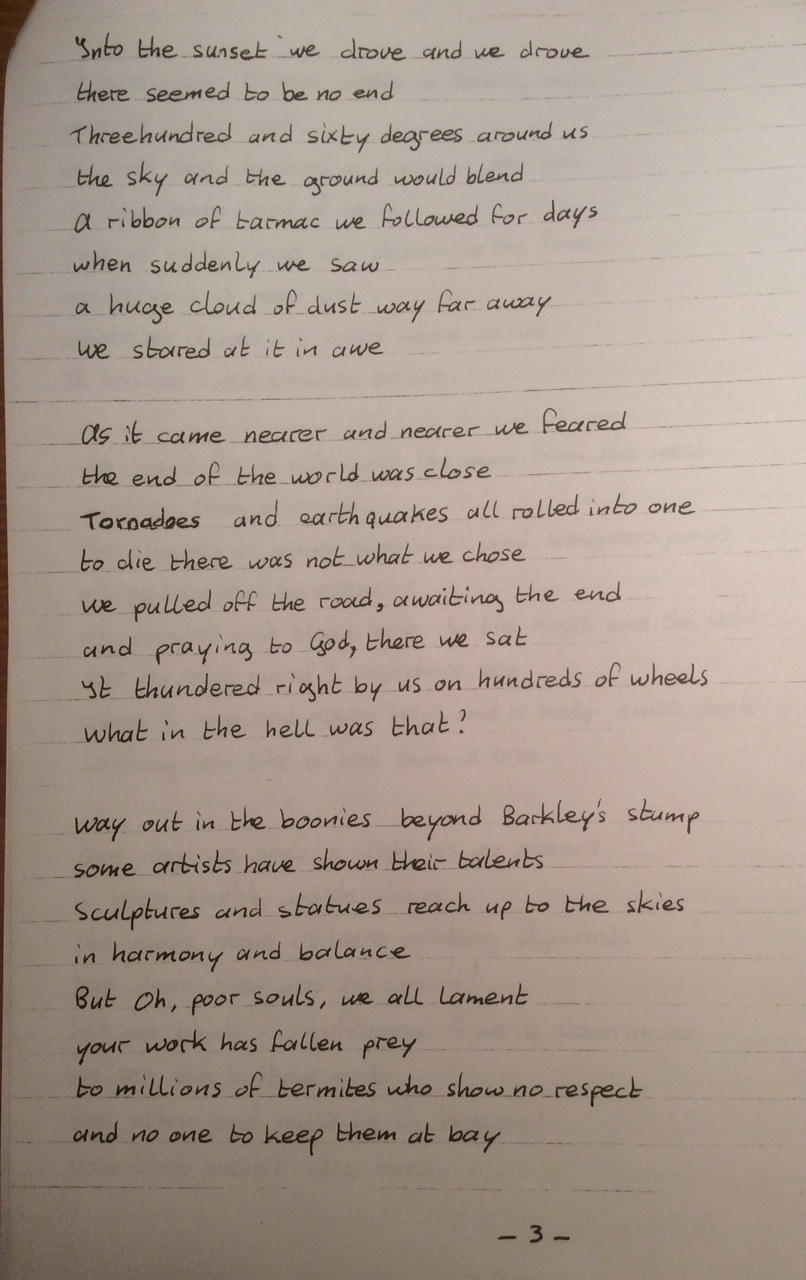 Into the sunset we drove and we drove
there seemed to be no end
Threehundred and sixty degrees around us
the sky and the ground would blend
a ribbon of tarmac we followed for days
when suddenly we saw
a huge cloud of dust way far away
we stared at it in awe
As it came nearer and nearer we feared
the end of the world was close
Tornadoes and earthquakes all rolled into one
to die there was not what we chose
we pulled off the road, awaiting the end
and praying to God, there we sat
It thundered right by us on hundreds of wheels
what in the hell was that?
way out in the boonies beyond Barkley's stump
some artists have shown their talents
Sculptures and statues reach up to the skies
in harmony and balance
But Oh, poor souls, we all lament
your work has fallen prey
to millions of termites who show no respect
and no one to keep them at bay
- 3 -